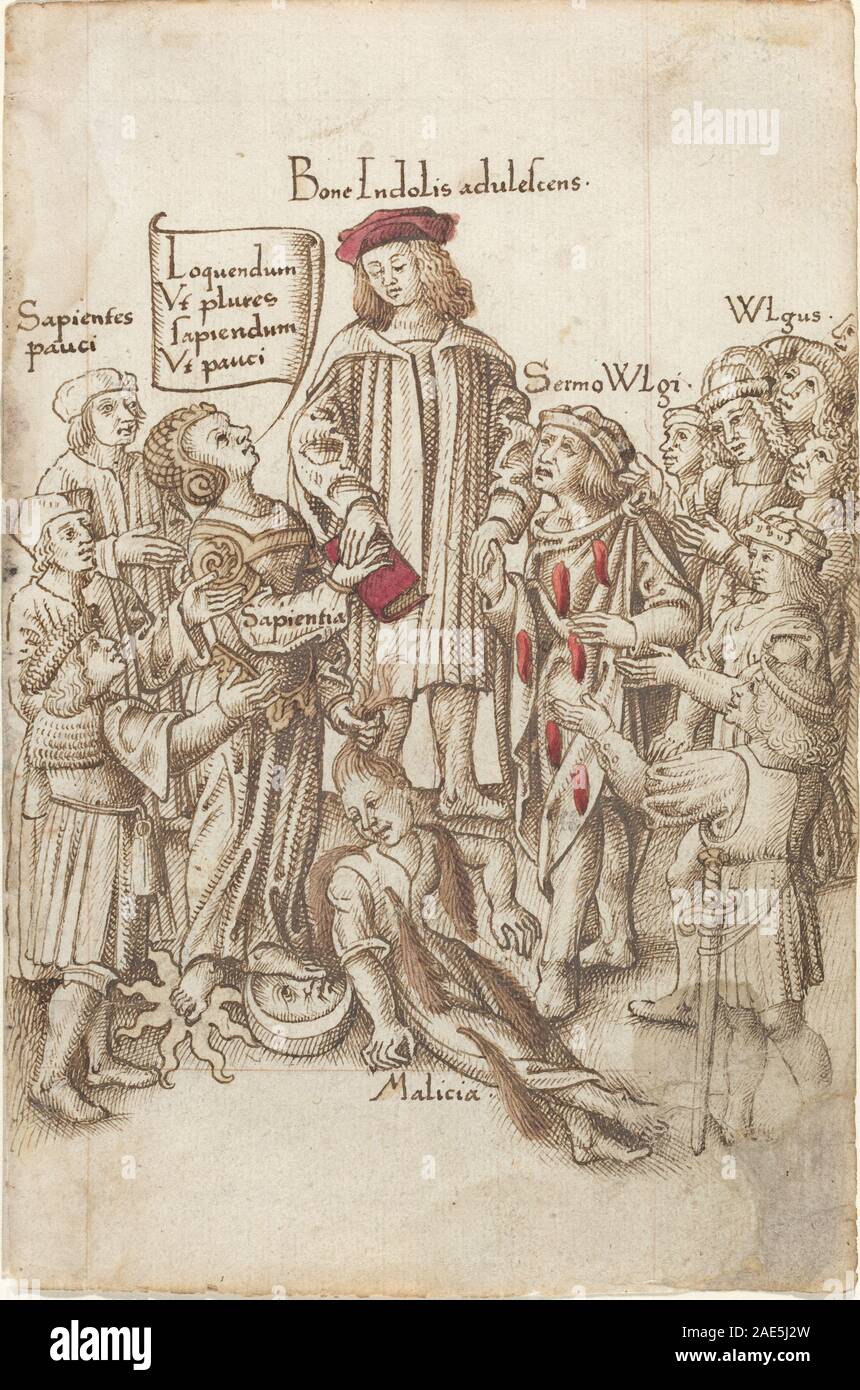 Bone Indolis adulescens.
Loquendum
Vt plures
sapiendum
Vt pauci
Sapientes
pauci
WLgus.
Sermo WLgi.
Sapientia
Malicia.
alamy
alamy
Image ID: 2AE5J2W
www.alamy.com